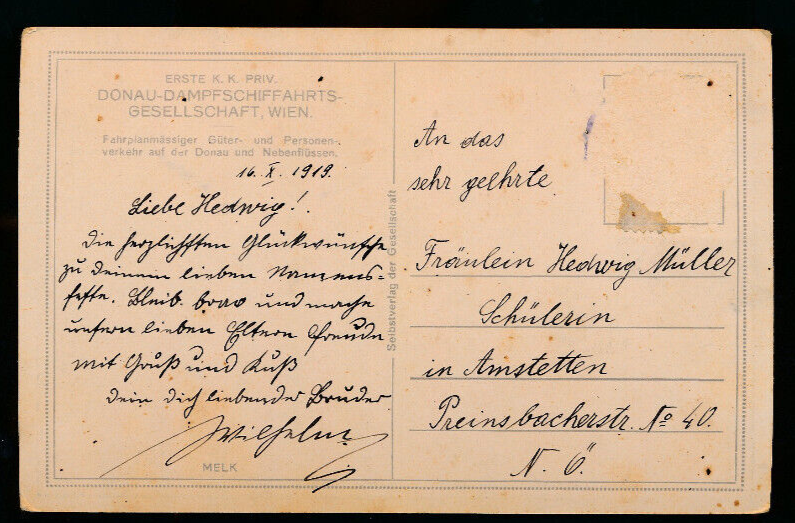 ERSTE K. K. PRIV.
DONAU-DAMPFSCHIFFAHRTS-
GESELLSCHAFT, WIEN.
Fahrplanmässiger Güter- und Personen-
verkehr auf der Donau und Nebenflüssen.
16. X. 1919.
Liebe Hedwig!
Die herzlichsten Glückwünsche
zu deinem lieben Namens-
feste. Bleib brav und mache
unsern lieben Eltern Freude
mit Gruß und Kuß
dein dich liebender Bruder
Wilhelm
MELK
Selbstverlag der Gesellschaft
An das
sehr geehrte
Fräulein Hedwig Müller
Schülerin
in Amstetten
Preinsbacherstr. No 40.
N. Ö.